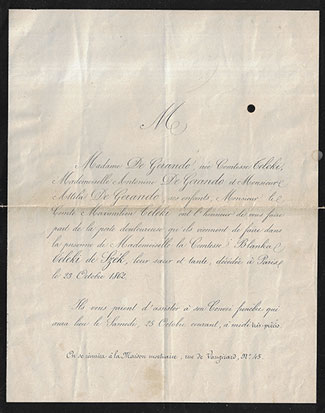 M
Madame De Gérando née Comtesse Teleki,
Mademoiselle Antonine De Gérando et Monsieur
Attila De Gérando, ses enfants, Monsieur le
Comte Maximilien Teleki ont l'honneur de vous faire
part de la perte douloureuse qu'ils viennent de faire dans
la personne de Mademoiselle la Comtesse Blanka
Teleki de Szék, leur sœur et tante, décédée à Paris,
le 23 Octobre 1862.
Ils vous prient d'assister à son Convoi funèbre qui
aura lieu le Samedi, 25 Octobre courant, à midi très-précis.
On se réunira à la Maison mortuaire, rue de Vaugirard, N.º 45.